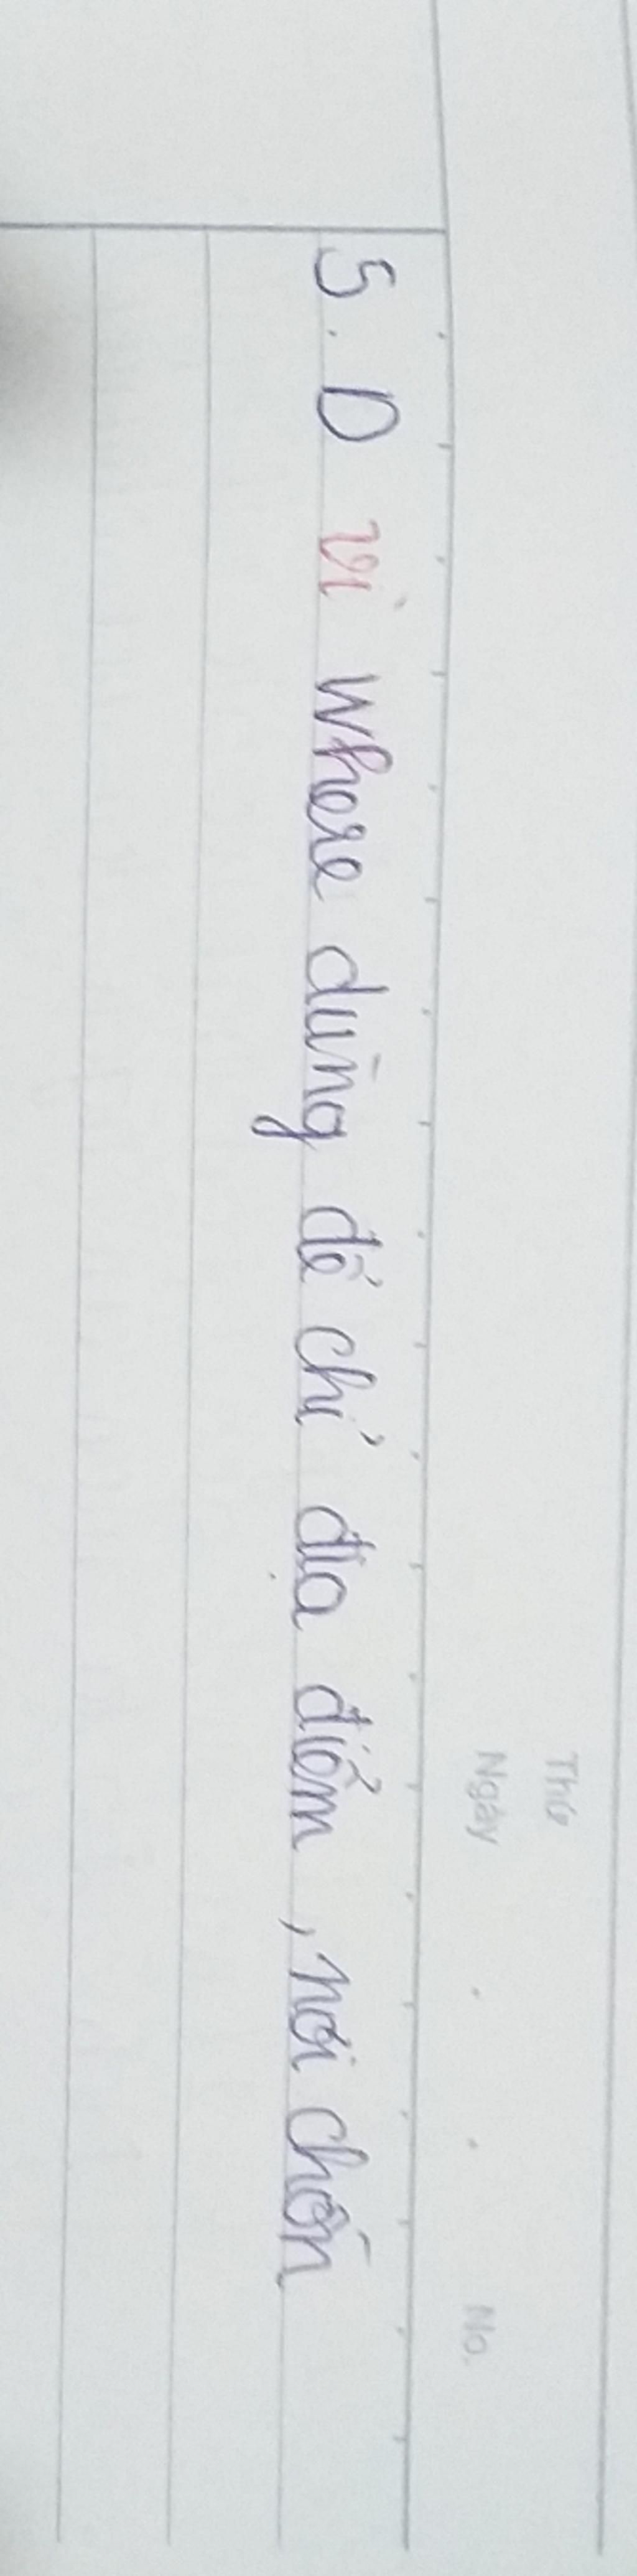 Thứ
Ngày . . No.
5. D vì where dùng để chỉ địa điểm, nơi chốn